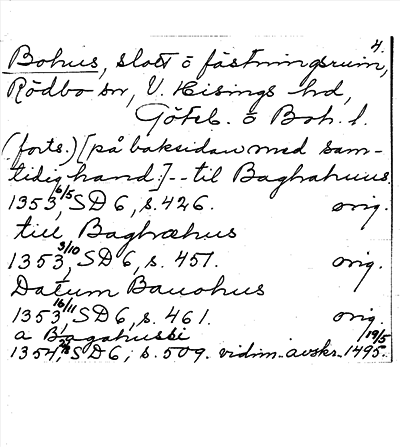 4.
Bohus, slott o fästningsruin,
Rödbo sn, V. Hisings hd,
Göteb. o Boh. l.
(forts.) [på baksidan med sam-
tidig hand:] -- til Baghahuus
1353 6/5, SD 6, s. 426. orig.
till Baghæhus
1353 3/10, SD 6, s. 451. orig.
Datum Bauohus
1353 16/11, SD 6, s. 461. orig.
a Bagahussi
1354, SD 6, s. 509. vidim. avskr. 1495 19/5.